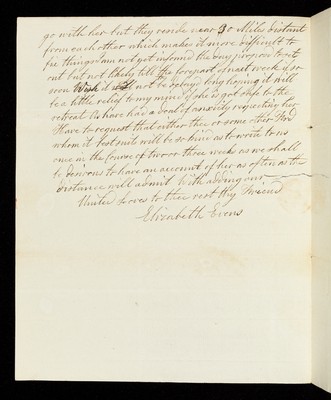 go with her but they reside near 30 Miles distant
from each other which makes it more difficult to
fix things am not yet informd the day purposed to set
out but not likely till the forepart of next week if so
soon Wish it may not be delayd long hoping it will
be a little relief to my mind if she is got safe to the
retreat As have had a deal of anxiety respecting her
Have to request that either thee or some other Frd
whom it best suits will be so kind as to write to us
once in the course of two or three weeks as we shall
be desirous to have an account of her as often as the
distance will admit With adding our
United Loves to thee rest thy Friend
Elizabeth Evens